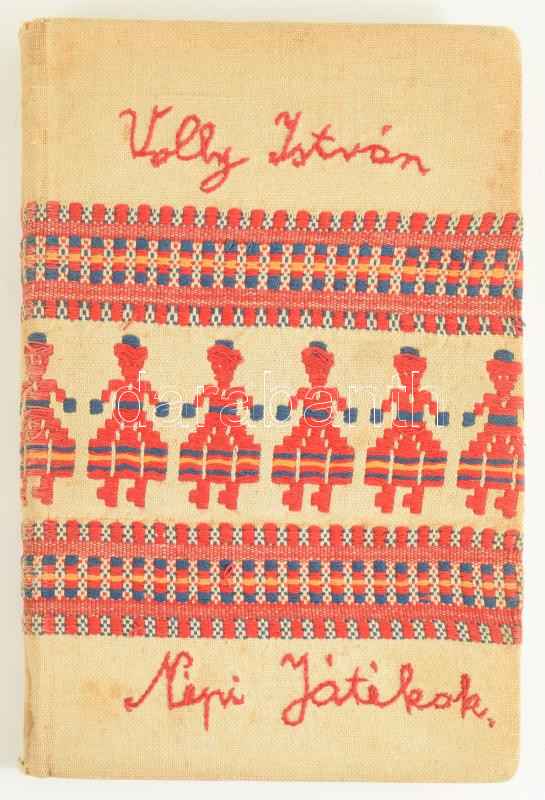 Volly István
darabanth
Népi Játékok.